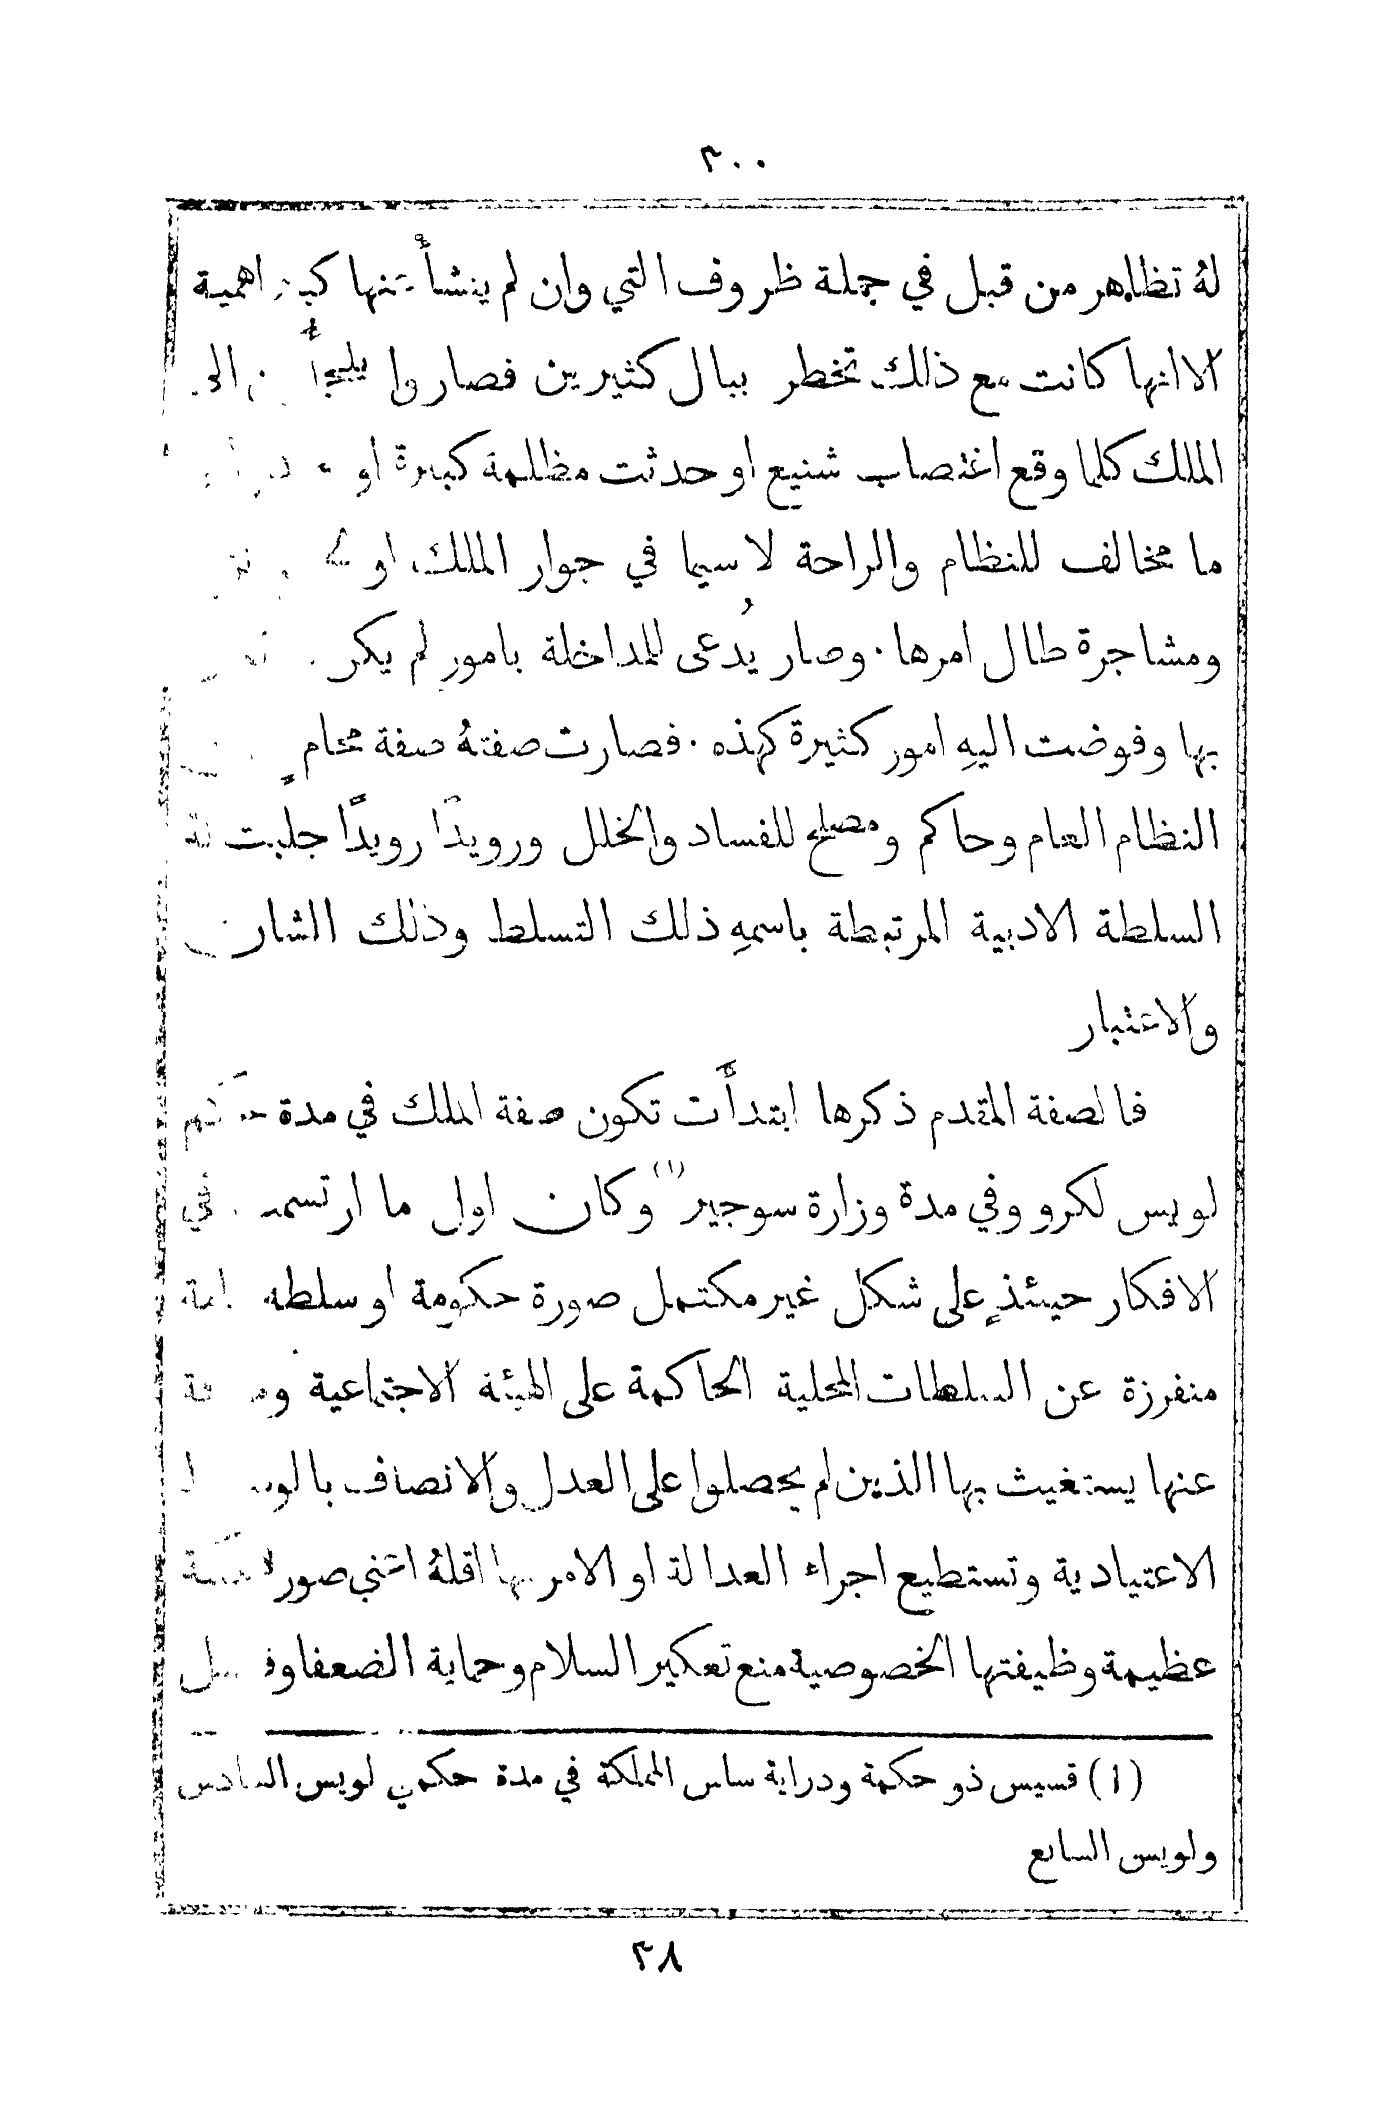 ٣٠٠
لهُ تظاهر من قبل في جملة ظروف التي وان لم ينشأ عنها كبير اهمية
الا انها كانت مع ذلك تخطر ببال كثيرين فصاروا الى
الملك كلما وقع اغتصاب شنيع او حدثت مظلمة كبيرة او
ما مخالف للنظام والراحة لاسيما في جوار الملك او
ومشاجرة طال امرها . وصار يُدعى للمداخلة بامور لم يكن
بها وفوضت اليهِ امور كثيرة كهذه . فصارت صفتهُ صفة محامٍ
النظام العام وحاكم ومصلح للفساد والخلل ورويدًا رويدًا جلبت لهُ
السلطة الادبية المرتبطة باسمهِ ذلك التسلط وذلك الشان
والاعتبار
فالصفة المقدم ذكرها ابتدأَت تكون صفة الملك في مدة حكم
لويس لكرو وفي مدة وزارة سوجير (١) وكان اول ما ارتسم في
الافكار حينئذٍ على شكل غير مكتمل صورة حكومة او سلطة عامة
منفرزة عن السلطات المحلية الحاكمة على الهيئة الاجتماعية
عنها يستغيث بها الذين لم يحصلوا على العدل والانصاف
الاعتيادية وتستطيع اجراء العدالة او الامر بها اقلهُ اعني صورة
عظيمة وظيفتها الخصوصية منع تعكير السلام وحماية الضعفا وفصل
(١) قسيس ذو حكمة ودراية ساس المملكة في مدة حكمي لويس السادس
ولويس السابع
٣٨